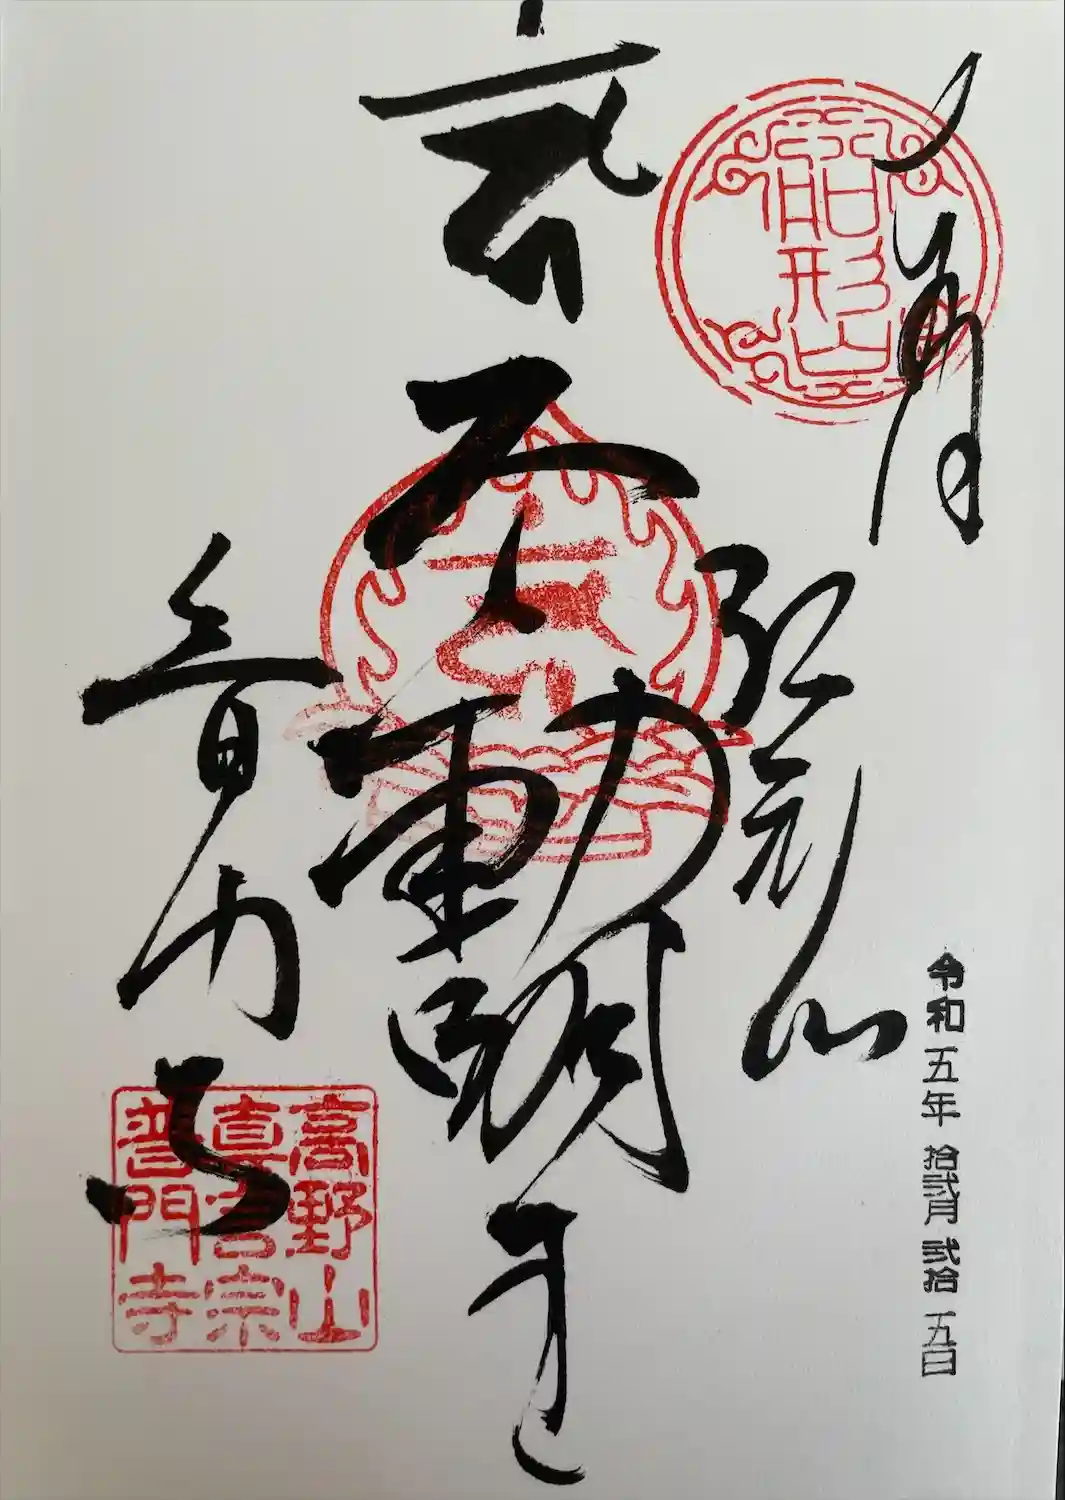 奉拝
船形山
令和五年拾弐月弐拾五日
不動明王
普門寺
高野山
真言宗
普門寺